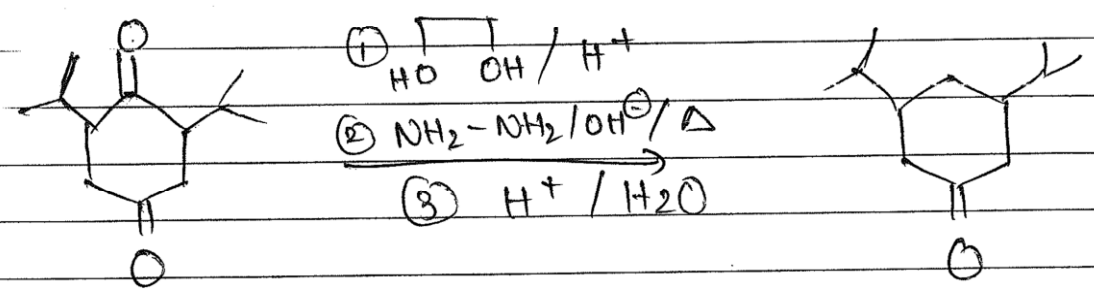 O
① HO OH / H⁺
② NH₂-NH₂/OH⊖/Δ
③ H⁺ / H₂O
O O